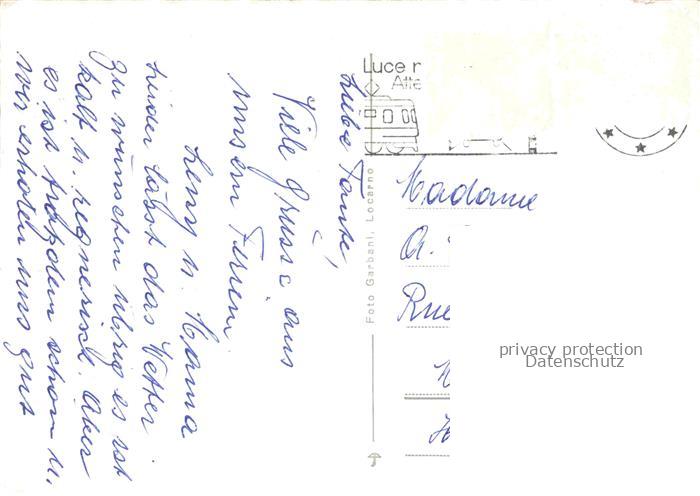 Liebe Tante,
Viele Grüsse aus
unsern Ferien.
Leny u. Hanna
Leider lässt das Wetter
zu wünschen übrig es ist
kalt u. regnerisch. Aber
es ist trotzdem schön u.
wir erholen uns gut
Lucer
Atte
Foto Garbani, Locarno
Madame
A.
Rue
privacy protection
Datenschutz